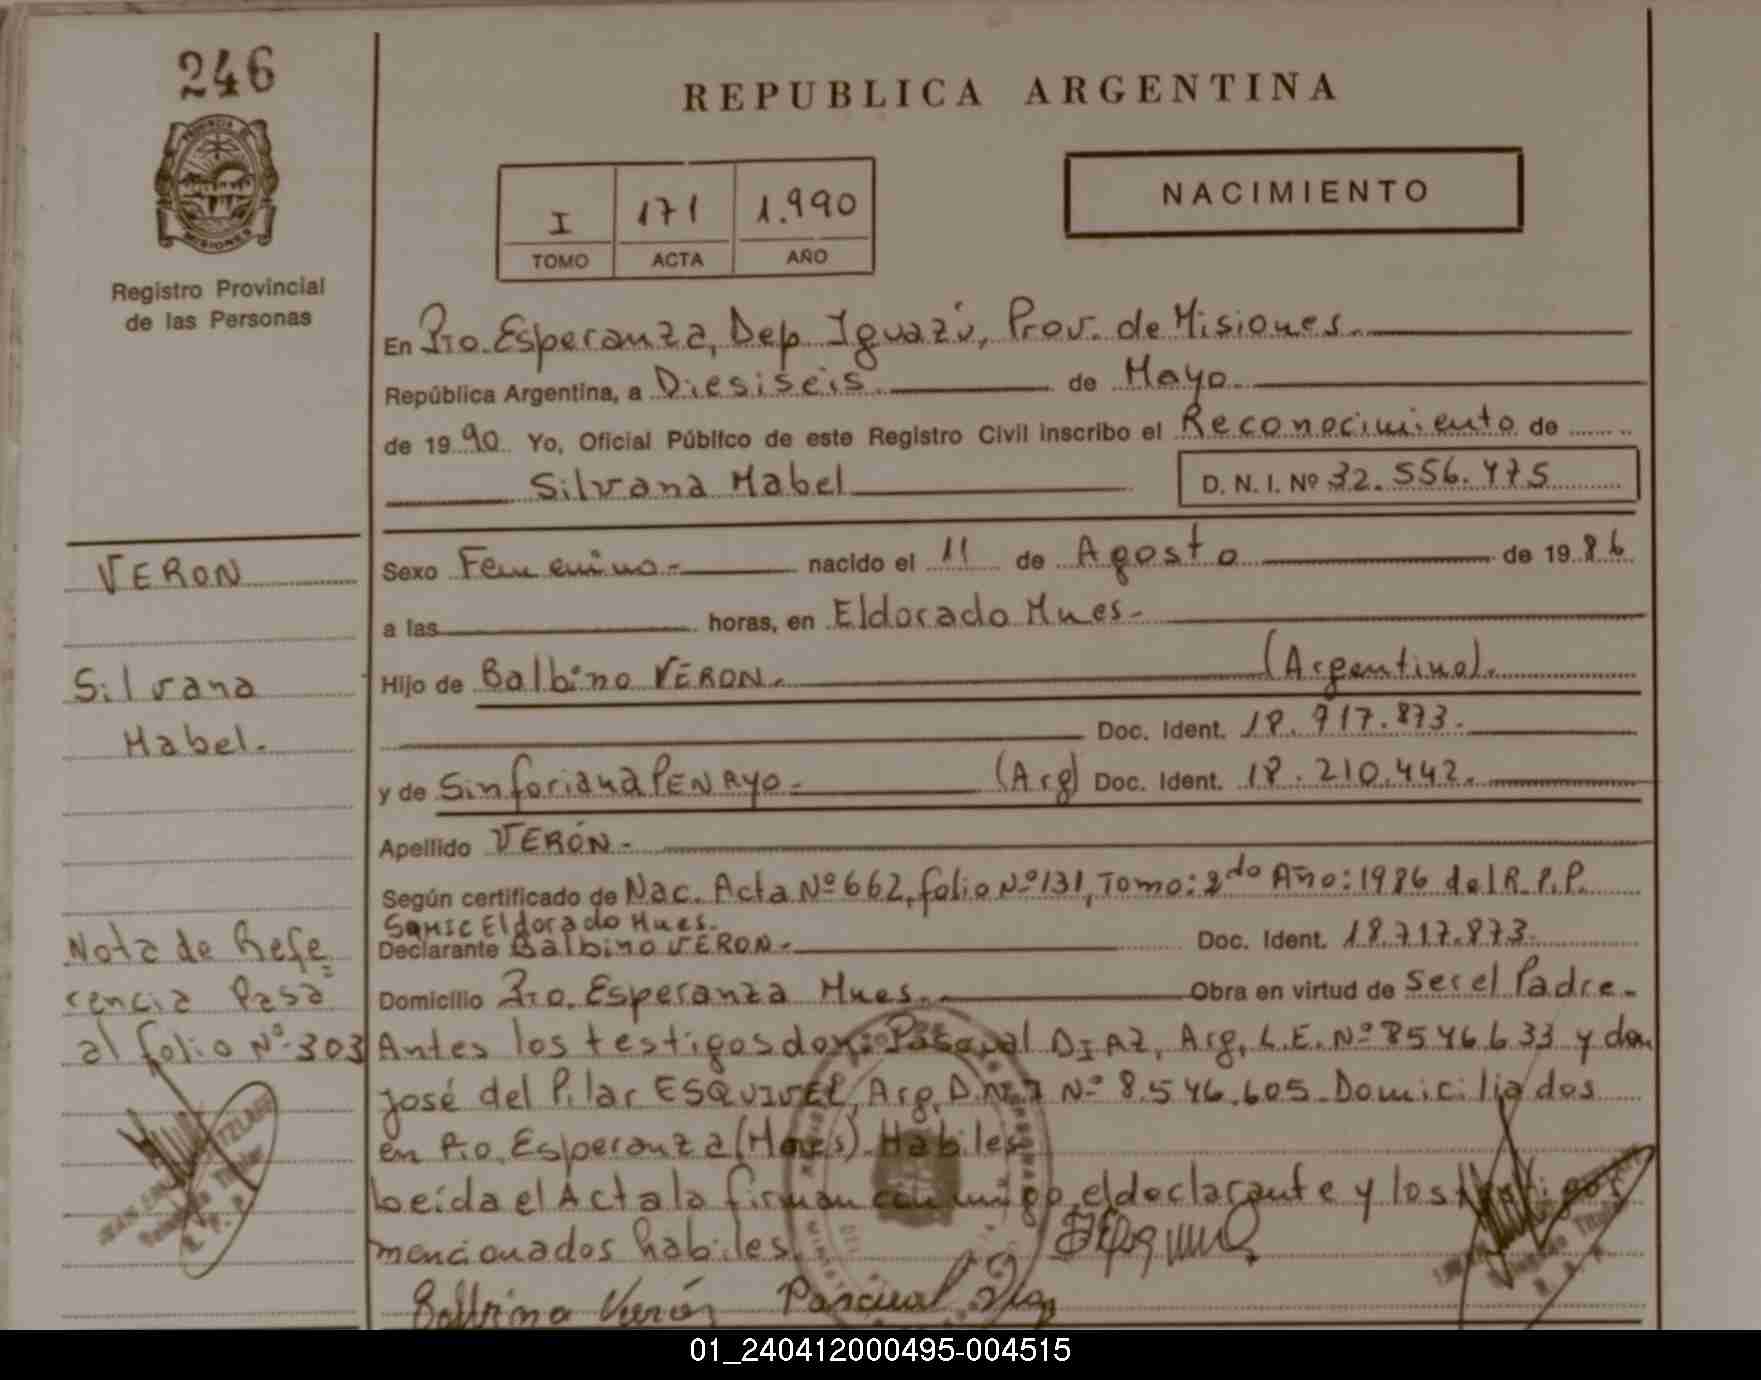 246
REPUBLICA ARGENTINA
PROVINCIA DE
MISIONES
NACIMIENTO
I 171 1.990
TOMO ACTA AÑO
Registro Provincial
de las Personas
En Pto. Esperanza, Dep Iguazú, Prov. de Misiones.
República Argentina, a Diesiseis. de Mayo.
de 1990. Yo, Oficial Público de este Registro Civil inscribo el Reconocimiento de
Silvana Mabel
D. N. I. Nº 32.556.475
VERON
Sexo Femenino.- nacido el 11 de Agosto de 1986
a las horas, en Eldorado Mnes-
Silvana
Hijo de Balbino VERON. (Argentino).
Mabel.
Doc. Ident. 18.717.873.
y de Sinforiana PENAYO- (Arg) Doc. Ident. 18.210.442.
Apellido VERÓN-
Según certificado de Nac. Acta Nº 662, folio Nº 131, Tomo: 2do Año: 1986 del R.P.P.
Samic Eldorado Mnes.
Declarante Balbino VERON- Doc. Ident. 18.717.873.
Nota de Refe
Domicilio Pto. Esperanza Mnes. Obra en virtud de Ser el Padre-
rencia Pasa
al folio Nº 303
Antes los testigos don: Pascual DIAZ, Arg, L.E. Nº 8546633 y don
José del Pilar ESQUIVEL, Arg, D.N.I Nº 8.546.605 Domiciliados
en Pto. Esperanza (Mnes). Habiles
Leída el Acta la firman conmigo, el declarante y los testigos
mencionados habiles.
Balbino Verón Pascual Diaz
01_240412000495-004515